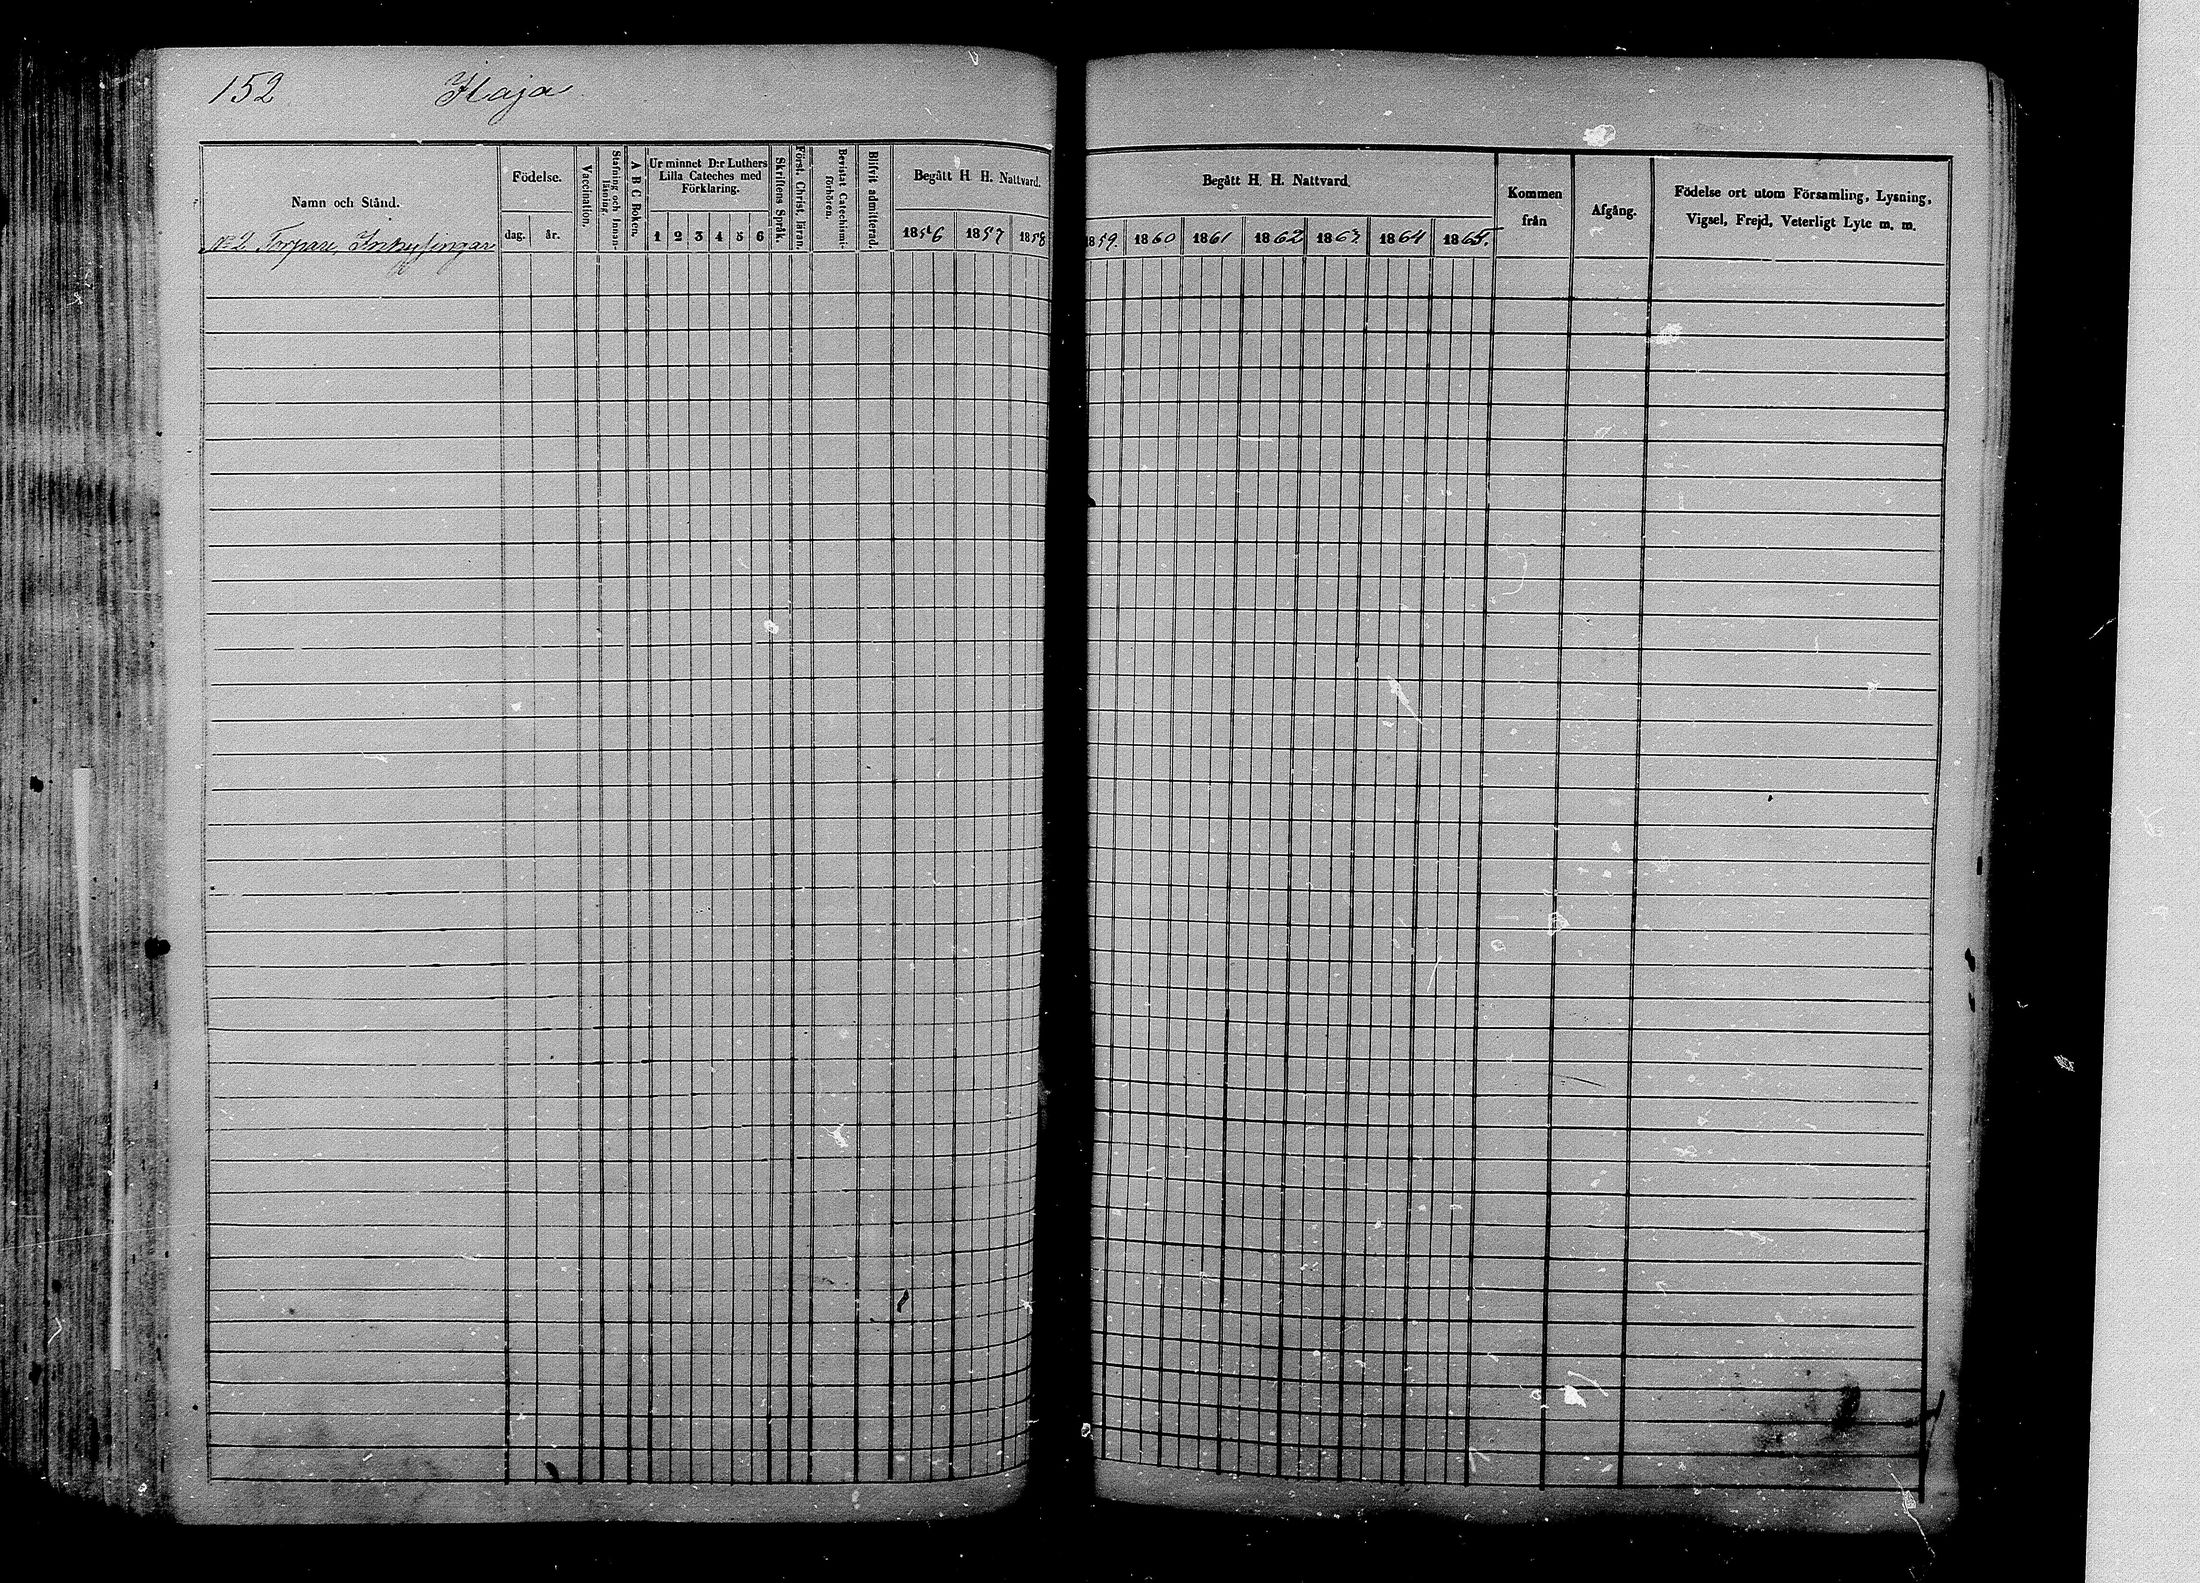 152 Haja
Namn och Stånd.
Födelse.
dag. år.
Vaccination.
Stafning och Innan-
läsning
A B C Boken.
Ur minnet D:r Luthers
Lilla Cateches med
Förklaring.
1 2 3 4 5 6
Skriftens Språk.
Först. Christ. läran.
Bevistat Catechismi-
förhören.
Blifvit admitterad.
Begått H H. Nattvard.
1856 1857 1858
Begått H. H. Nattvard.
1859. 1860 1861 1862 1863 1864 1865.
Kommen
från
Afgång.
Födelse ort utom Församling, Lysning,
Vigsel, Frejd, Veterligt Lyte m. m.
No 2 Torpare, Inhysingar